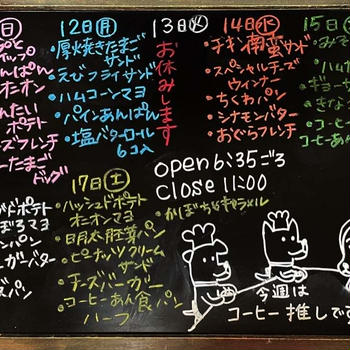 日
あんぱん
オニオン
ポテト
ズフレンチ
たまご
ドッグ
12日 月
・厚焼きたまご
サンド
・えびフライサンド
・ハムコーンマヨ
・パインあんぱん
・塩バターロール
6コ入
13日 火
お休みします
14日 水
・チキン南蛮サンド
・スペシャルチーズ
ウィンナー
・ちくわパン
・シナモンバター
・おぐらフレンチ
15日
・みそ
・ハム
・ギョーザ
・きなこ
・コーヒー
コーヒーあん
open 6:35ごろ
close 11:00
ポテト
マヨ
パン
バター
スパン
17日 土
・ハッシュドポテト
オニオンマヨ
・明太胚芽パン
・ピーナッツクリーム
サンド
・チーズバーガー
・コーヒーあん食パン
ハーフ
・かぼちゃキャラメル
今週は
コーヒー推しです